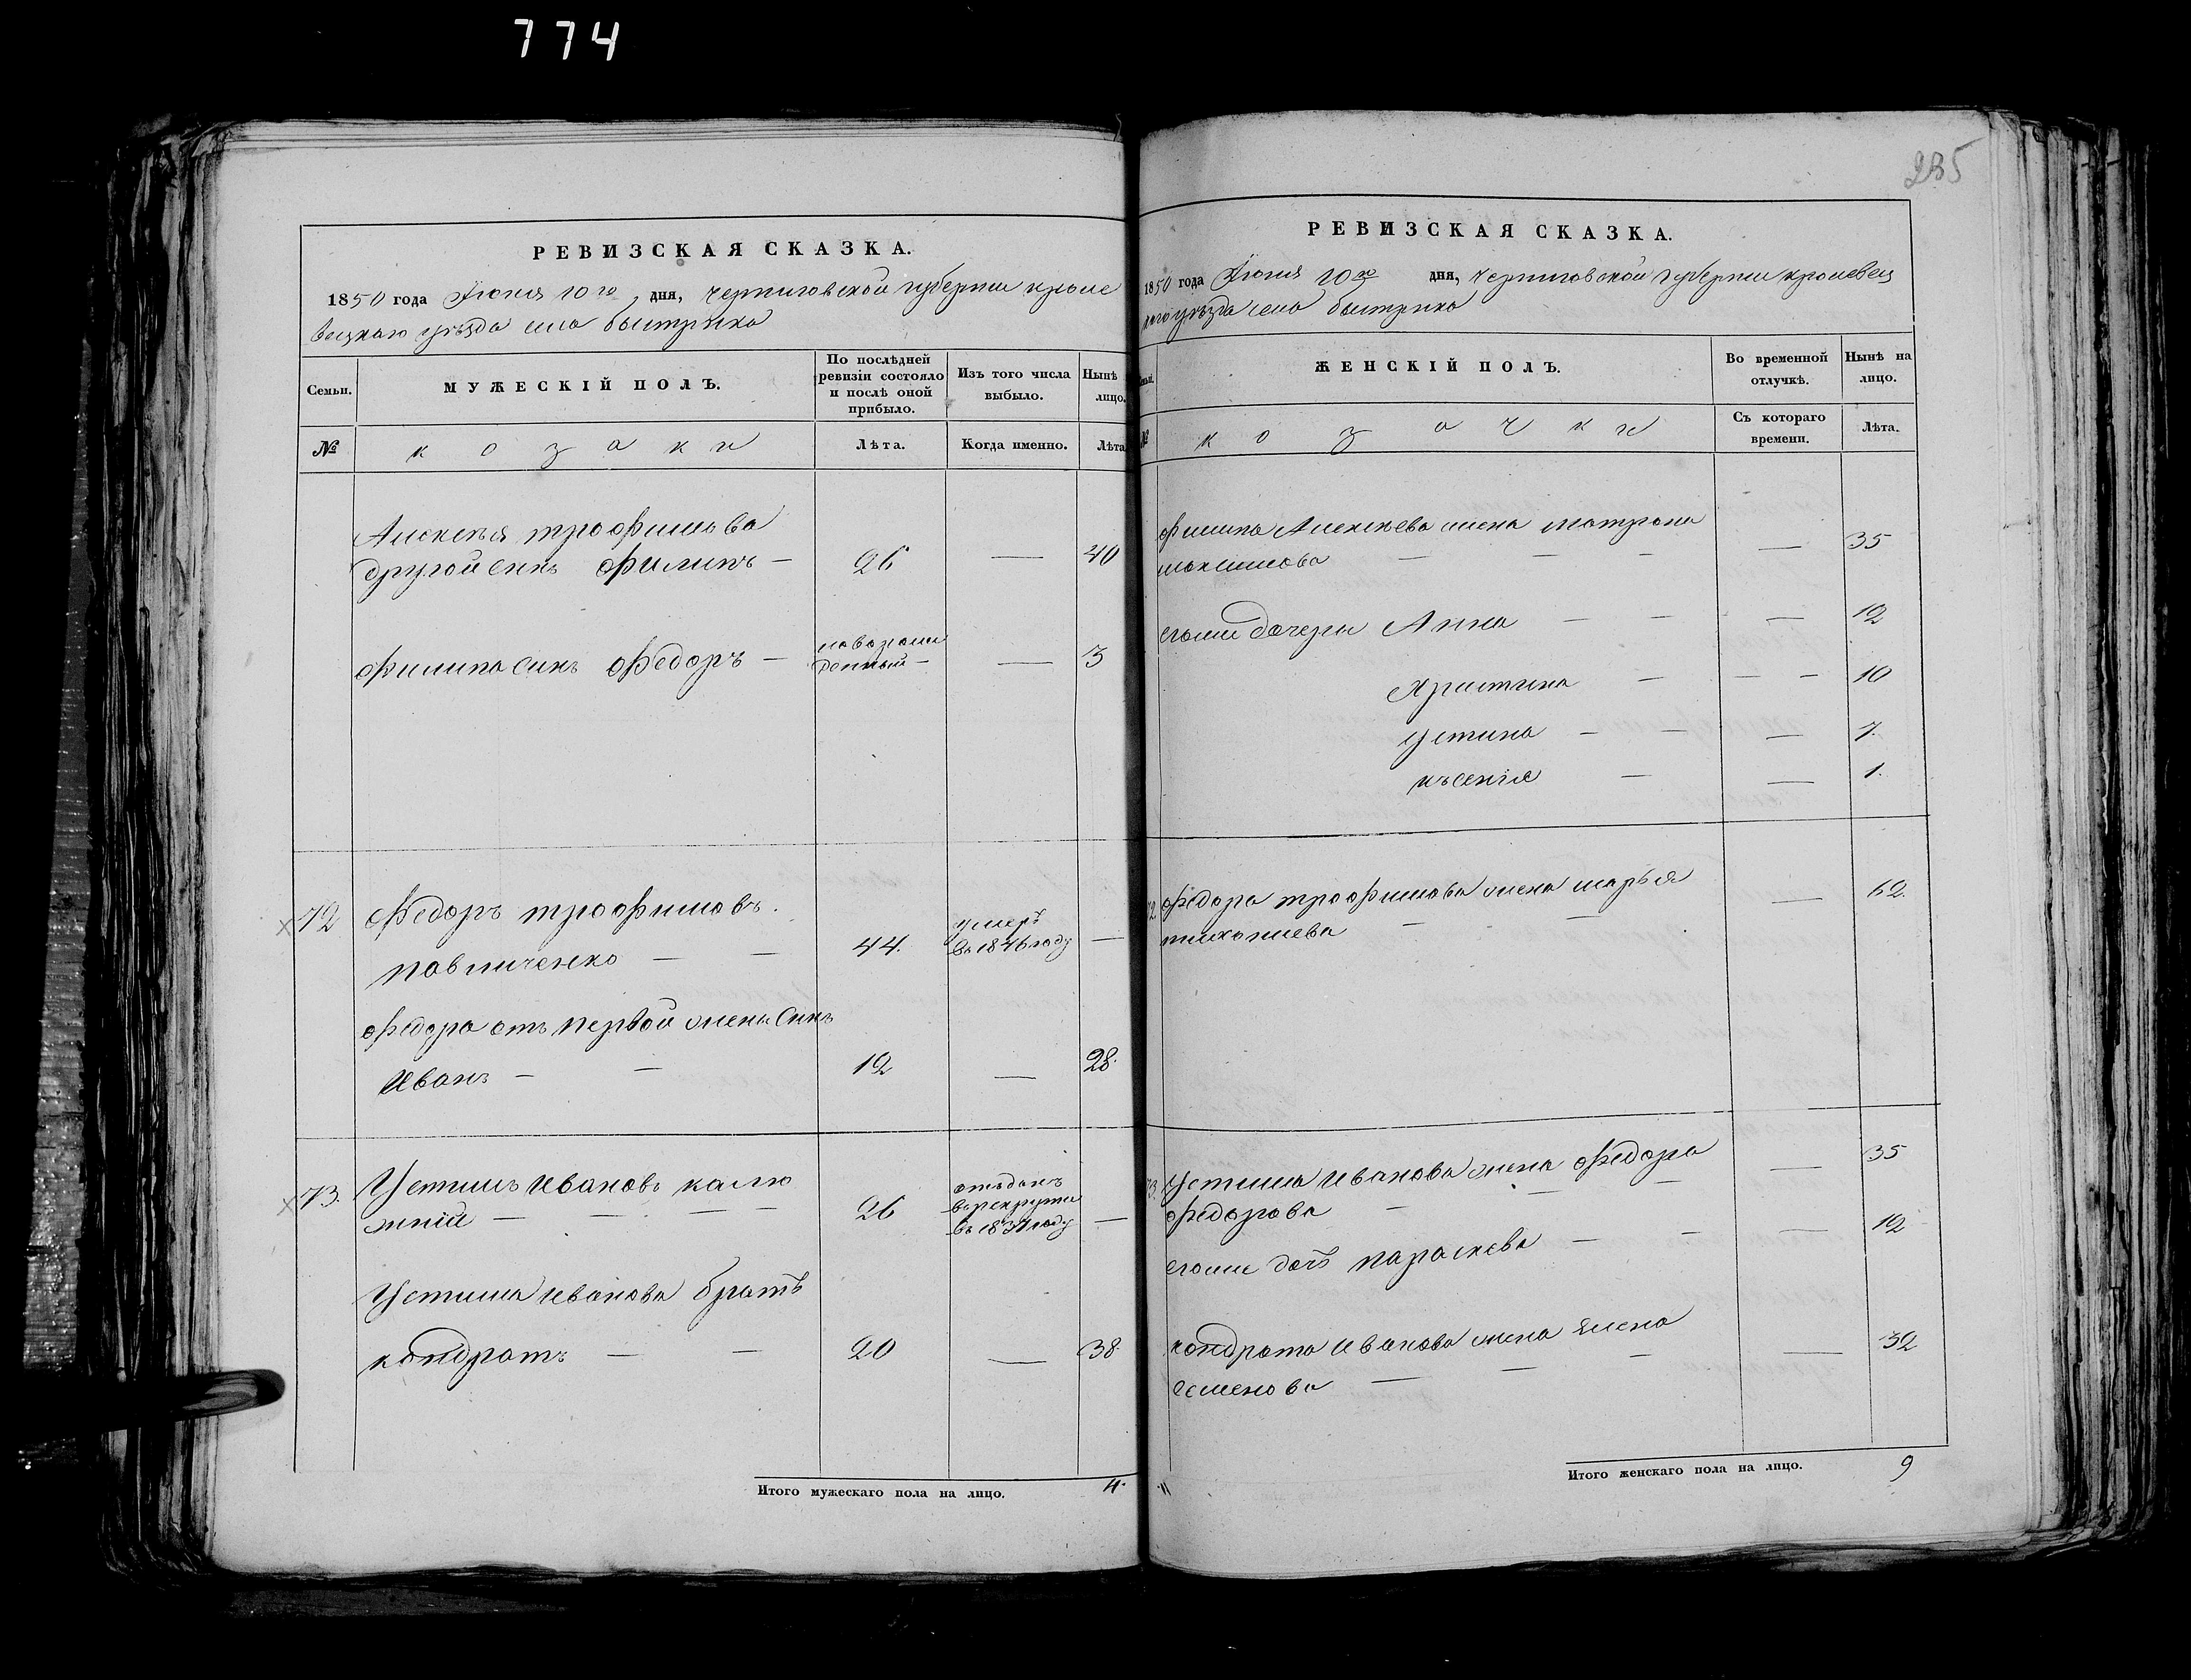 774
235
РЕВИЗСКАЯ СКАЗКА.
1850 года Июня 10го дня, черниговской губернии кроле
вецкаго уѣзда села быстрика
Семьи.
МУЖЕСКІЙ ПОЛЪ.
По послѣдней ревизіи состояло и послѣ оной прибыло.
Изъ того числа выбыло.
Нынѣ
лицо.
№
козаки
Лѣта.
Когда именно.
Лѣта
Алексѣя трофимова
другой синъ филипъ — 26 — 40
филипа синъ федоръ — новорож
денный — — 3
72 Федоръ трофимовъ.
павличенко — — 44. умеръ
въ 1846 году —
федора отъ первой жены синъ
Иванъ — — 12 — 28.
73. Устимъ Ивановъ калю
жній — — — — 26 отъданъ
в рекруты
въ 1834 году —
Устима Иванова братъ
кондратъ — — 20 — 38
Итого мужескаго пола на лицо. 4.
РЕВИЗСКАЯ СКАЗКА.
1850 года Июня 10го дня, черниговской губернии кролевец
каго уѣзда села быстрика
ЖЕНСКІЙ ПОЛЪ.
Во временной отлучкѣ.
Нынѣ на лицо.
№
козачки
Съ котораго времени.
Лѣта.
филипа Алексѣева жена матрона
максимова — — — — 35
егоже дочери Анна — — — 12
христина — — — 10
Устина — — — 7.
късенія — — 1.
72 федора трофимова жена марья
тихониева — — — 62.
73. Устима Иванова жена федора
федорова — — — — 35
егоже дочь параскева — — — 12
кондрата Иванова жена Елена
семенова — — — — 32
Итого женскаго пола на лицо. 9